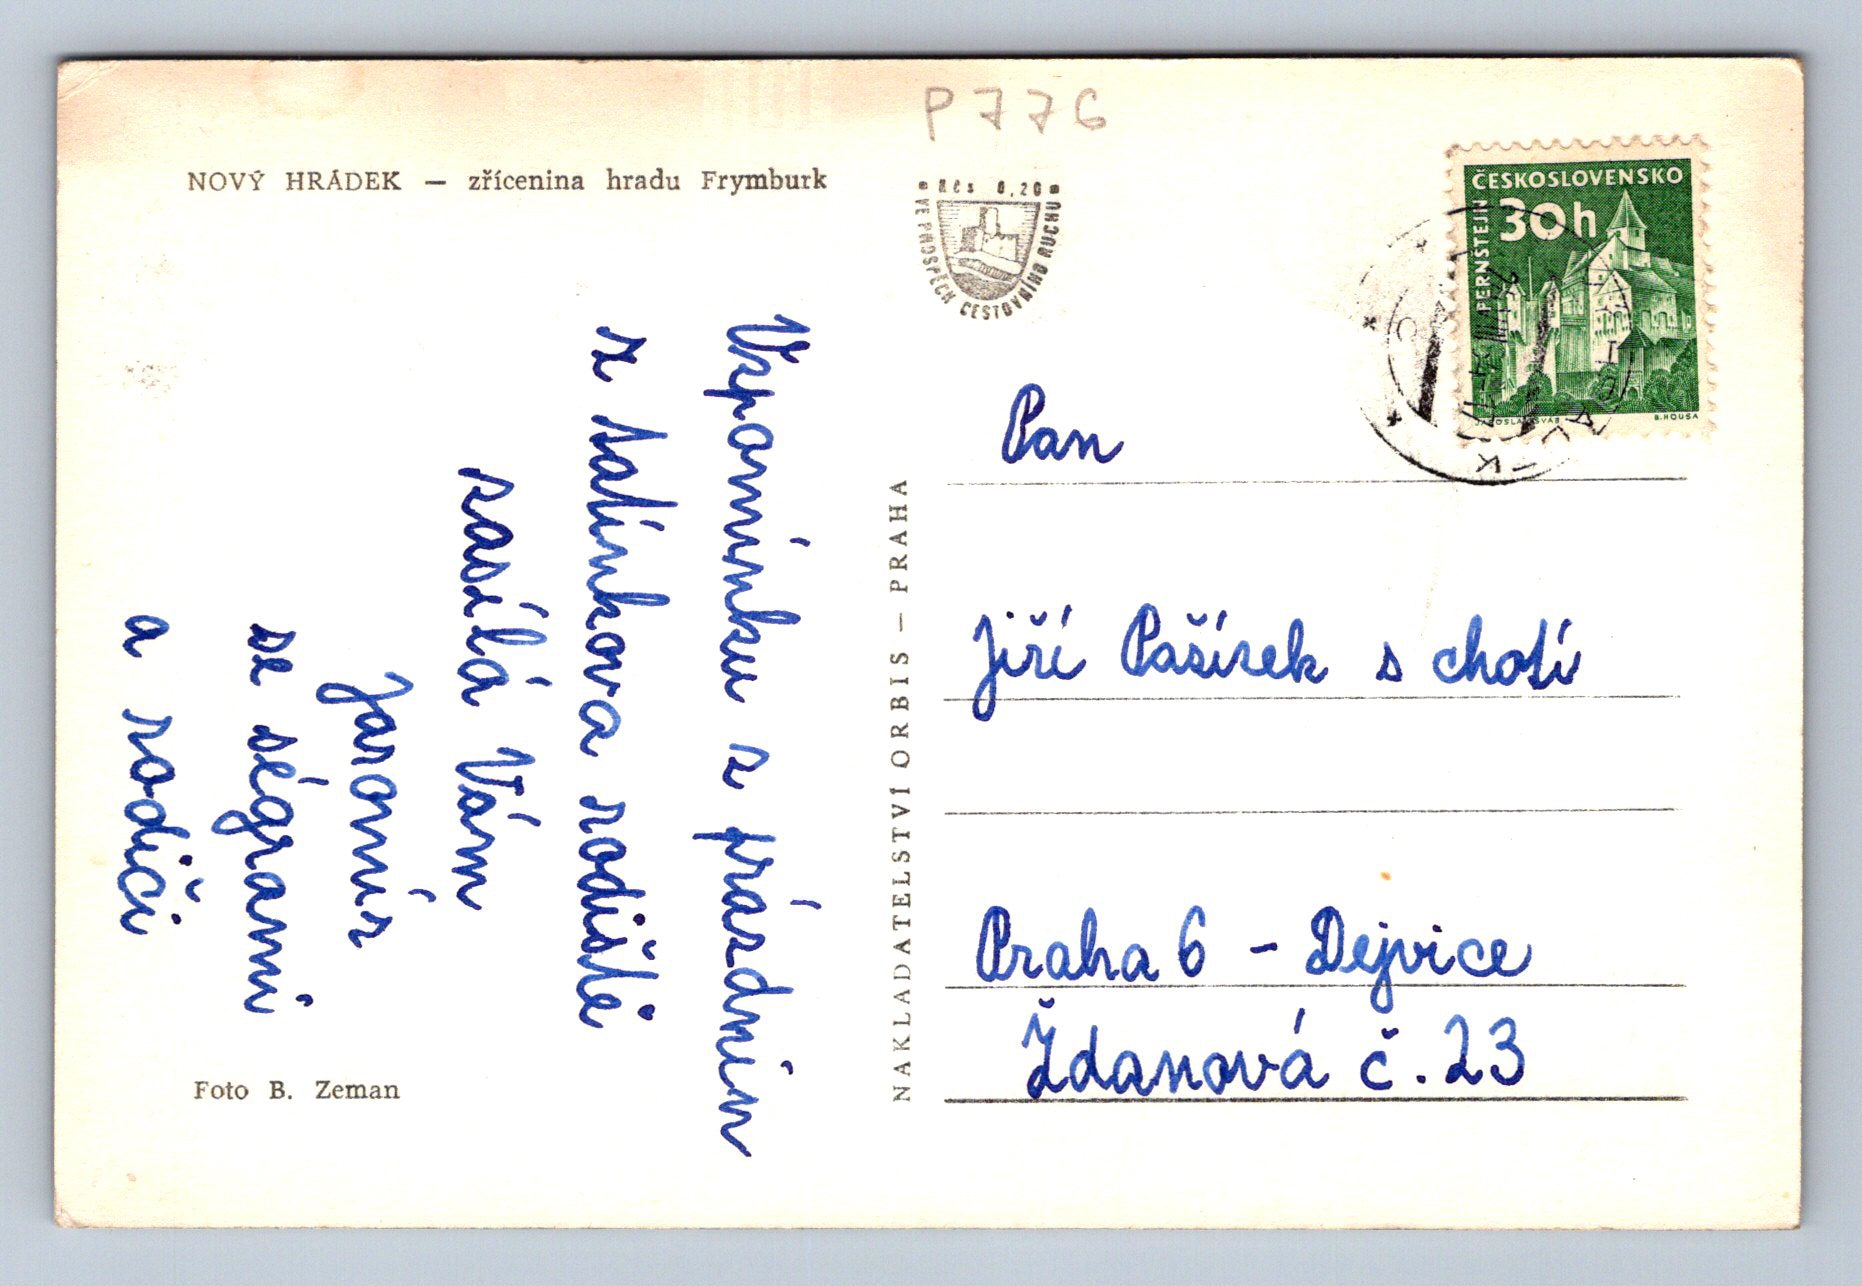 P 776
NOVÝ HRÁDEK — zřícenina hradu Frymburk
Kčs 0,20
VE PROSPĚCH CESTOVNÍHO RUCHU
ČESKOSLOVENSKO
30h
PERNŠTEJN
JAROSLAV ŠVÁB
B. HOUSA
Vzpomínku a prázdnin
z tatínkova rodiště
zasílá Vám
Jaromír
se ségrami
a rodiči
Foto B. Zeman
NAKLADATELSTVÍ ORBIS — PRAHA
Pan
Jiří Pašízek s chotí
Praha 6 - Dejvice
Ždanová č. 23